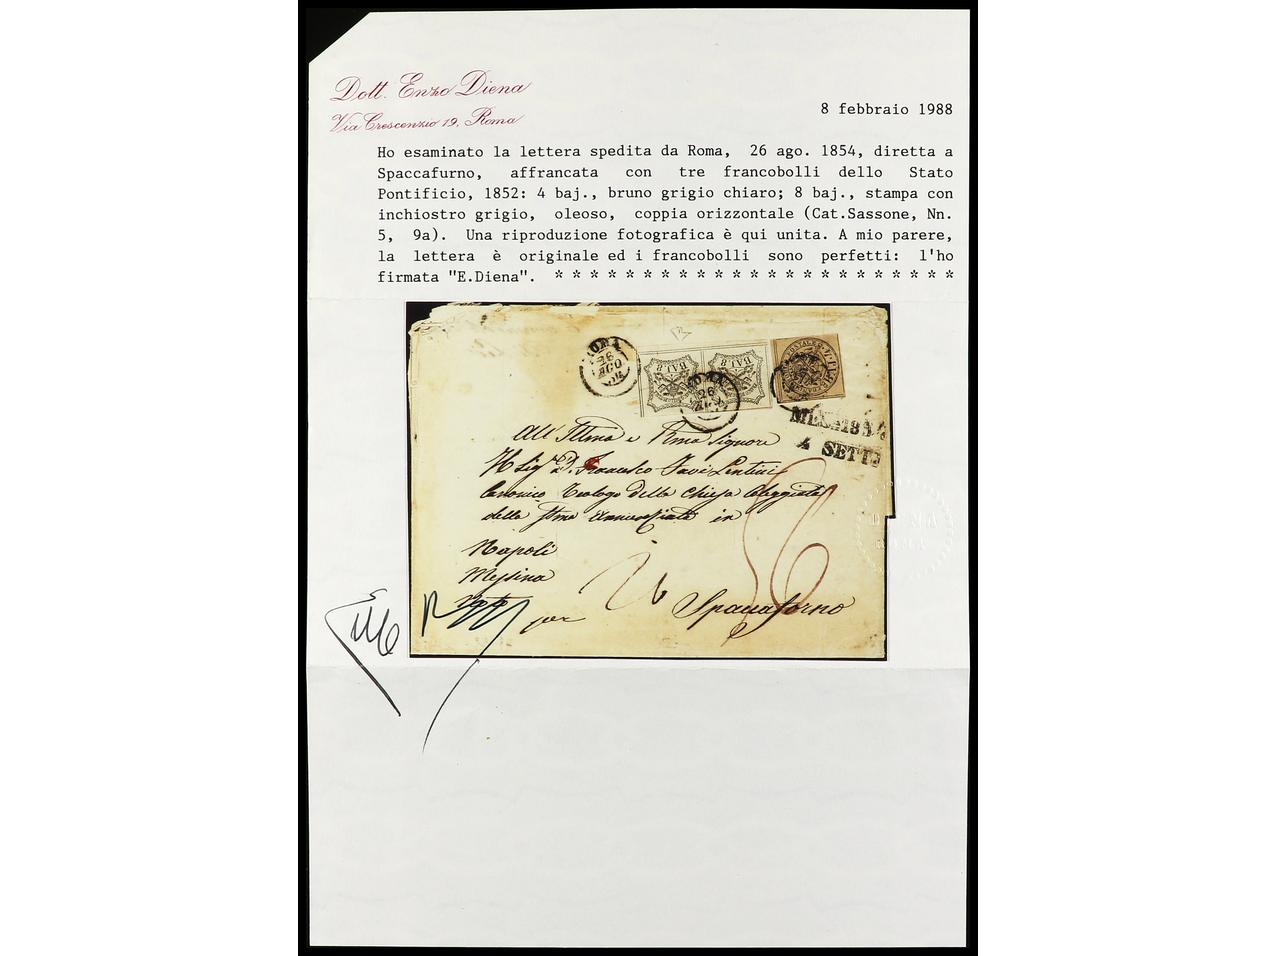 Dott. Enzo Diena
Via Crescenzio 19, Roma
8 febbraio 1988
Ho esaminato la lettera spedita da Roma, 26 ago. 1854, diretta a
Spaccafurno, affrancata con tre francobolli dello Stato
Pontificio, 1852: 4 baj., bruno grigio chiaro; 8 baj., stampa con
inchiostro grigio, oleoso, coppia orizzontale (Cat.Sassone, Nn.
5, 9a). Una riproduzione fotografica è qui unita. A mio parere,
la lettera è originale ed i francobolli sono perfetti: l'ho
firmata "E.Diena". * * * * * * * * * * * * * * * * * * * * * * *
ROMA
26
AGO
54
BAJ 8
BAJ 8
ROMA
26
AGO
4 SETT
All' Illma e Rma Signore
Il Sigr D. Francesco Savo Lentini
Canonico Teologo della Chiesa Colleggiata
della SSma Annunziata in
Napoli
Messina
per
Spaccaforno
DIENA
ROMA